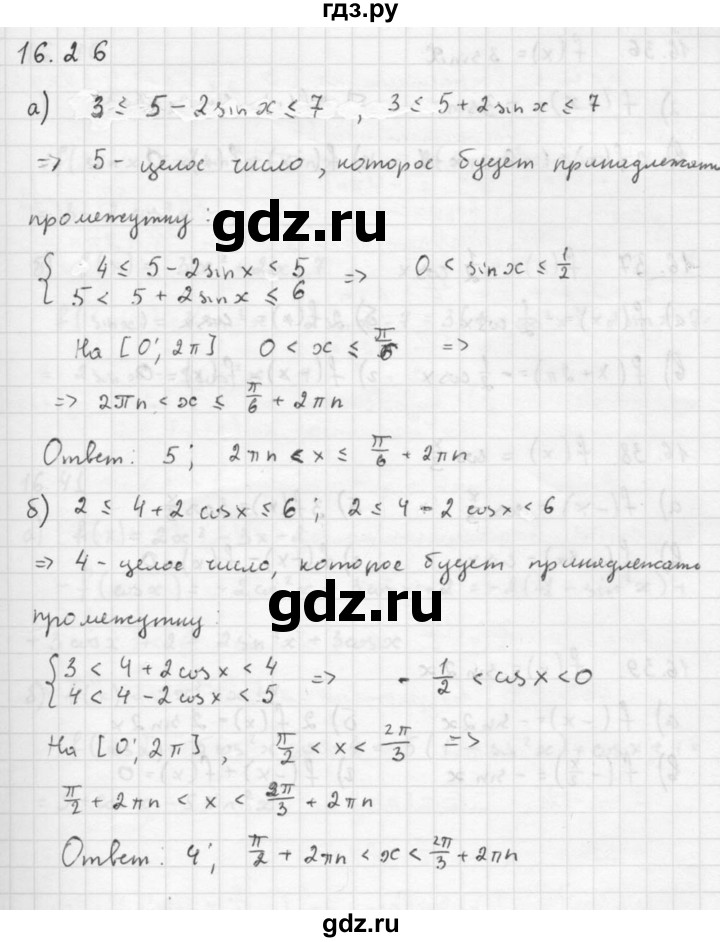 гдз.ру
16.26
а) 3 ≤ 5 - 2 sin x ≤ 7 , 3 ≤ 5 + 2 sin x ≤ 7
=> 5 - целое число, которое будет принадлежать
промежутку:
gdz.ru
{ 4 ≤ 5 - 2 sin x < 5 => 0 < sin x ≤ 1/2
5 < 5 + 2 sin x ≤ 6
На [0; 2π] 0 < x ≤ π/6 =>
=> 2πn < x ≤ π/6 + 2πn
Ответ: 5; 2πn < x ≤ π/6 + 2πn
б) 2 ≤ 4 + 2 cos x ≤ 6 ; 2 ≤ 4 - 2 cos x < 6
=> 4 - целое число, которое будет принадлежать
gdz.ru
промежутку:
{ 3 < 4 + 2 cos x < 4 => - 1/2 < cos x < 0
4 < 4 - 2 cos x < 5
На [0; 2π], π/2 < x < 2π/3 =>
π/2 + 2πn < x < 2π/3 + 2πn
Ответ: 4; π/2 + 2πn < x < 2π/3 + 2πn
gdz.ru